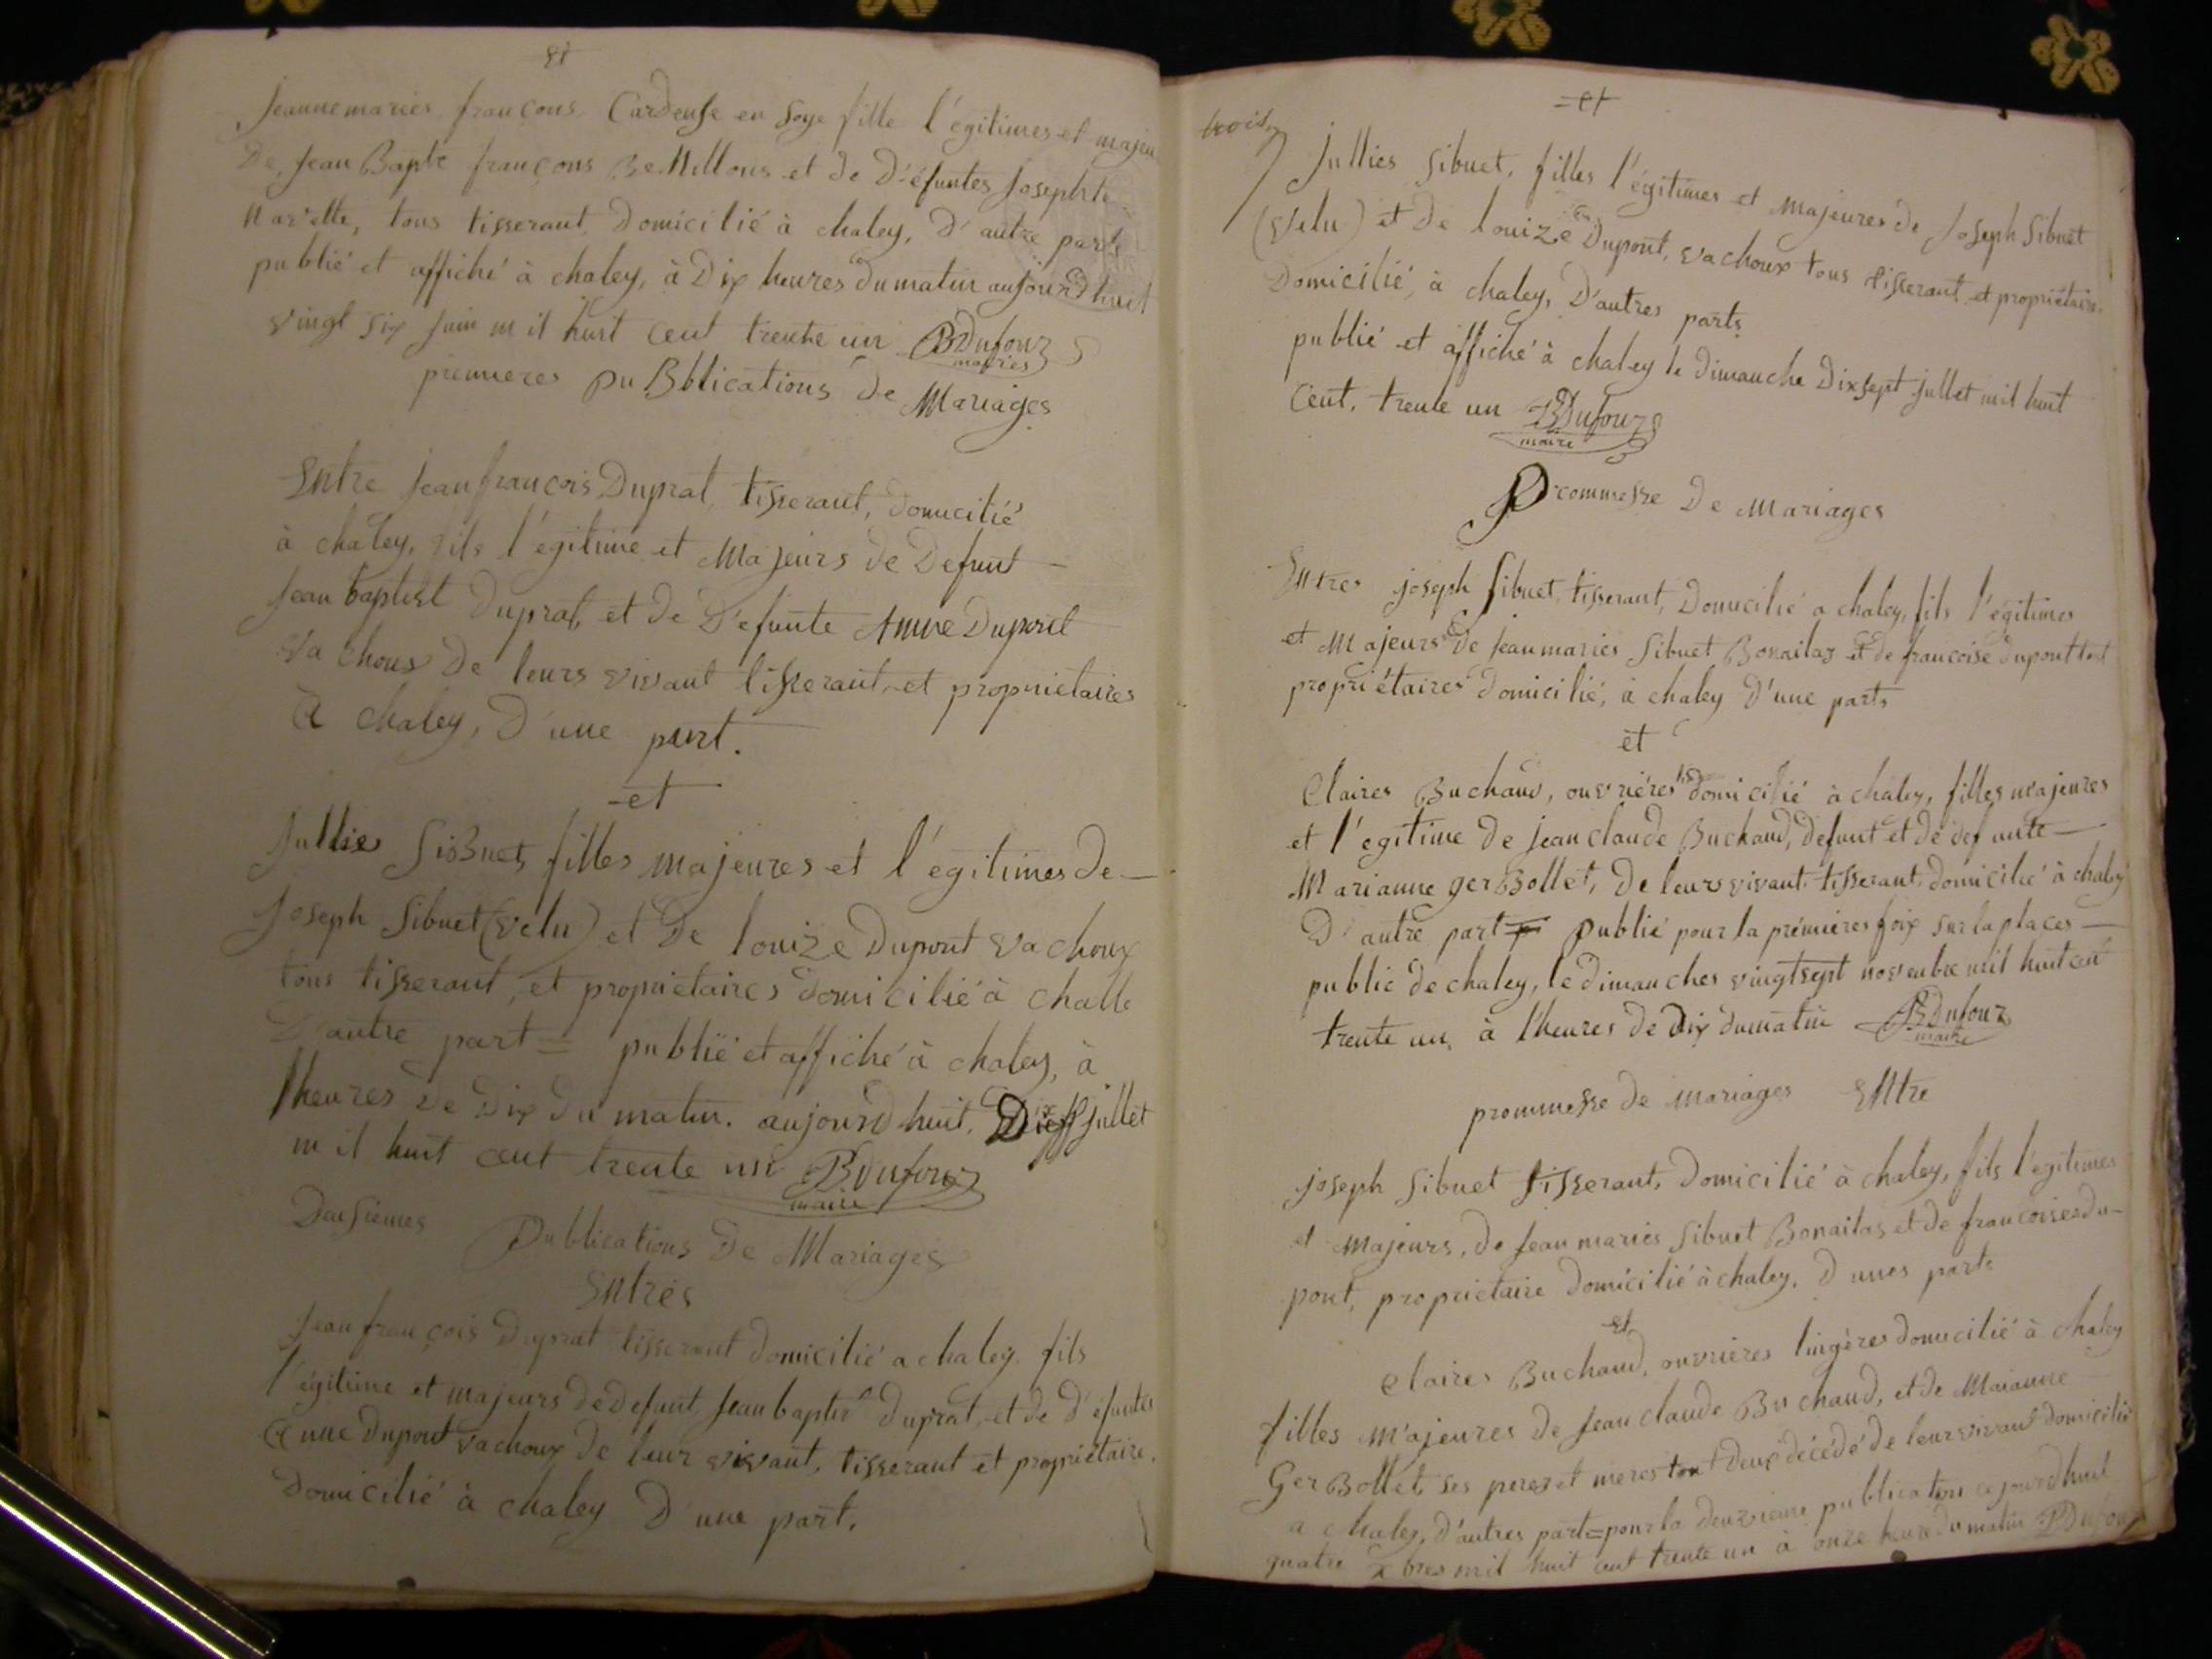 et
Jeanne maries françons Cardeuse en Soye fille l'égitimes et majeu
De Jean Bapte françons Bellillons et de D'éfuntes Josephte
Navette, tous tisserant, Domicilié à chaley, D'autre parts
publié et affiché à chaley, à Dix heures du matin aujourd huit
vingt six Juin mil huit Ceut treute un BDufour
maires
premieres puBblications de Mariages
Entre Jean françois Duprat, tisserant, domicilié
à chaley, fils l'égitime et Majeurs de Defunt
Jean baptist Duprat, et de D'efunte Anne Dupont
Vachoux De leurs vivant tisserant et propriétaires
à Chaley, D'une part.
et
Jullies SisBuet, filles majeures et l'égitimes de
Joseph Sibuet (velu) et De louize Dupont vachoux
tous tisserant, et propriétaires domicilié à Challe
D'autre part = publié et affiché à chaley, à
lheures De Dix du matin. aujourdhuit, Dix jullet
mil huit ceut treute un BDufour
maire
Deusiemes Publications De Mariages
Entres
Jean françois Duprat tisserant domicilié a chaley, fils
l'égitime et majeurs de Defunt, Jean baptist Duprat, et de D'éfuntes
Anne Dupont vachoux de leur vivant, tisserant et propriétaire.
Domicilié à chaley D'une part.
=et
trois
Jullies Sibuet, filles l'égitimes et Majeures de Joseph Sibuet
(Velu) et De louize Dupont, vachoux tous tisserant et propriétaire.
Domicilié, à chaley, D'autres parts
publié et affiché à chaley le dimanche Dixsept jullet mil huit
Ceut, treute un BDufour
maire
Prcommesse De Mariages
Entres joseph Sibuet, tisserant, Domicilié a chaley, fils l'égitimes
et Majeurs De Jean maries Sibuet Bonailas et de françoise dupont tout
propriétaires domicilié, à chaley D'une parts
et
Claires Buchaud, ouvriéres domicilié à chaley, filles majeures
et l'egitime De jean claude Buchaud, defunt et de defunte
Marianne gerBollet, De leurs vivant tisserant, domicilié à chaley
D'autre part = publié pour la prémieres foix sur la places
public de chaley, le dimanches vingtsept novenbre mil huit ceut
treute un, à lheures de Dix dumatin BDufour
maire
prommesse de mariages Entre
joseph Sibuet tisserant, Domicilié à chaley, fils l'égitimes
et majeurs, de Jean maries Sibuet Bonailas et de françoises du-
pont, propriétaire Domicilié à chaley, D unes parts
et
Claires Buchaud, ouvrieres lingères domicilié à Chaley
filles Majeures de Jean claude Buchaud, et de Maianne
GerBollet, ses peres et meres tout Deux décédé de leurs vivant domicilié
a chaley, D'autres part = pour la deuxieme publication cejourdhuit
quatre xbres mil huit ceut treute un à onze heure du matin BDufour